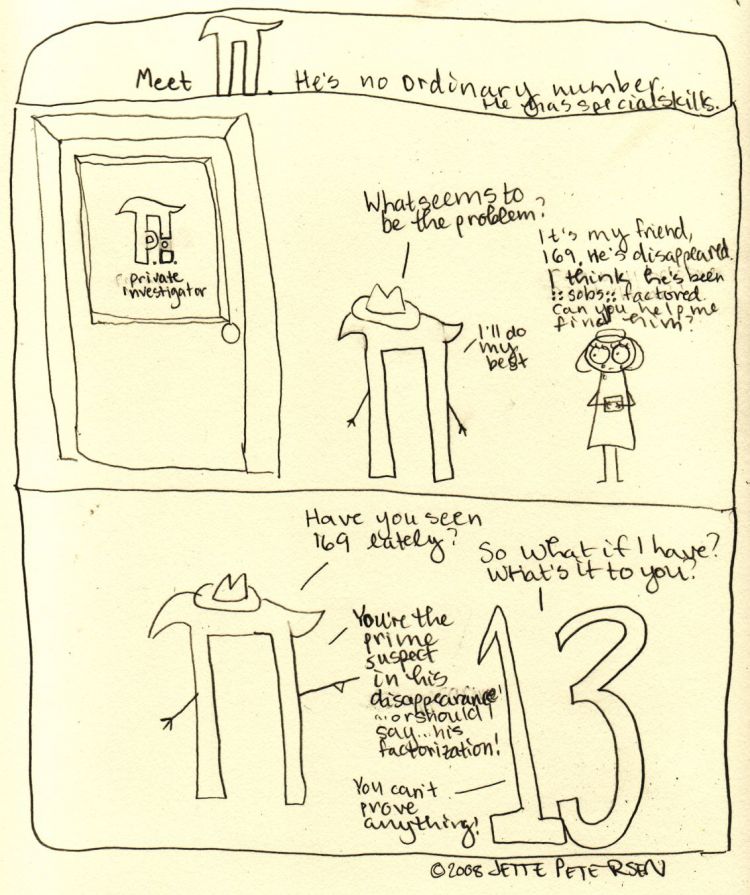 Meet π. He's no ordinary number.
He has special skills.
π
P.I.
private
investigator
What seems to
be the problem?
It's my friend,
169. He's disappeared.
I think he's been
::sobs:: factored.
Can you help me
find him?
I'll do
my
best
Have you seen
169 lately?
So what if I have?
What's it to you?
You're the
prime
suspect
in his
disappearance!
...or should I
say...his
factorization!
13
You can't
prove
anything!
©2008 JETTE PETERSEN